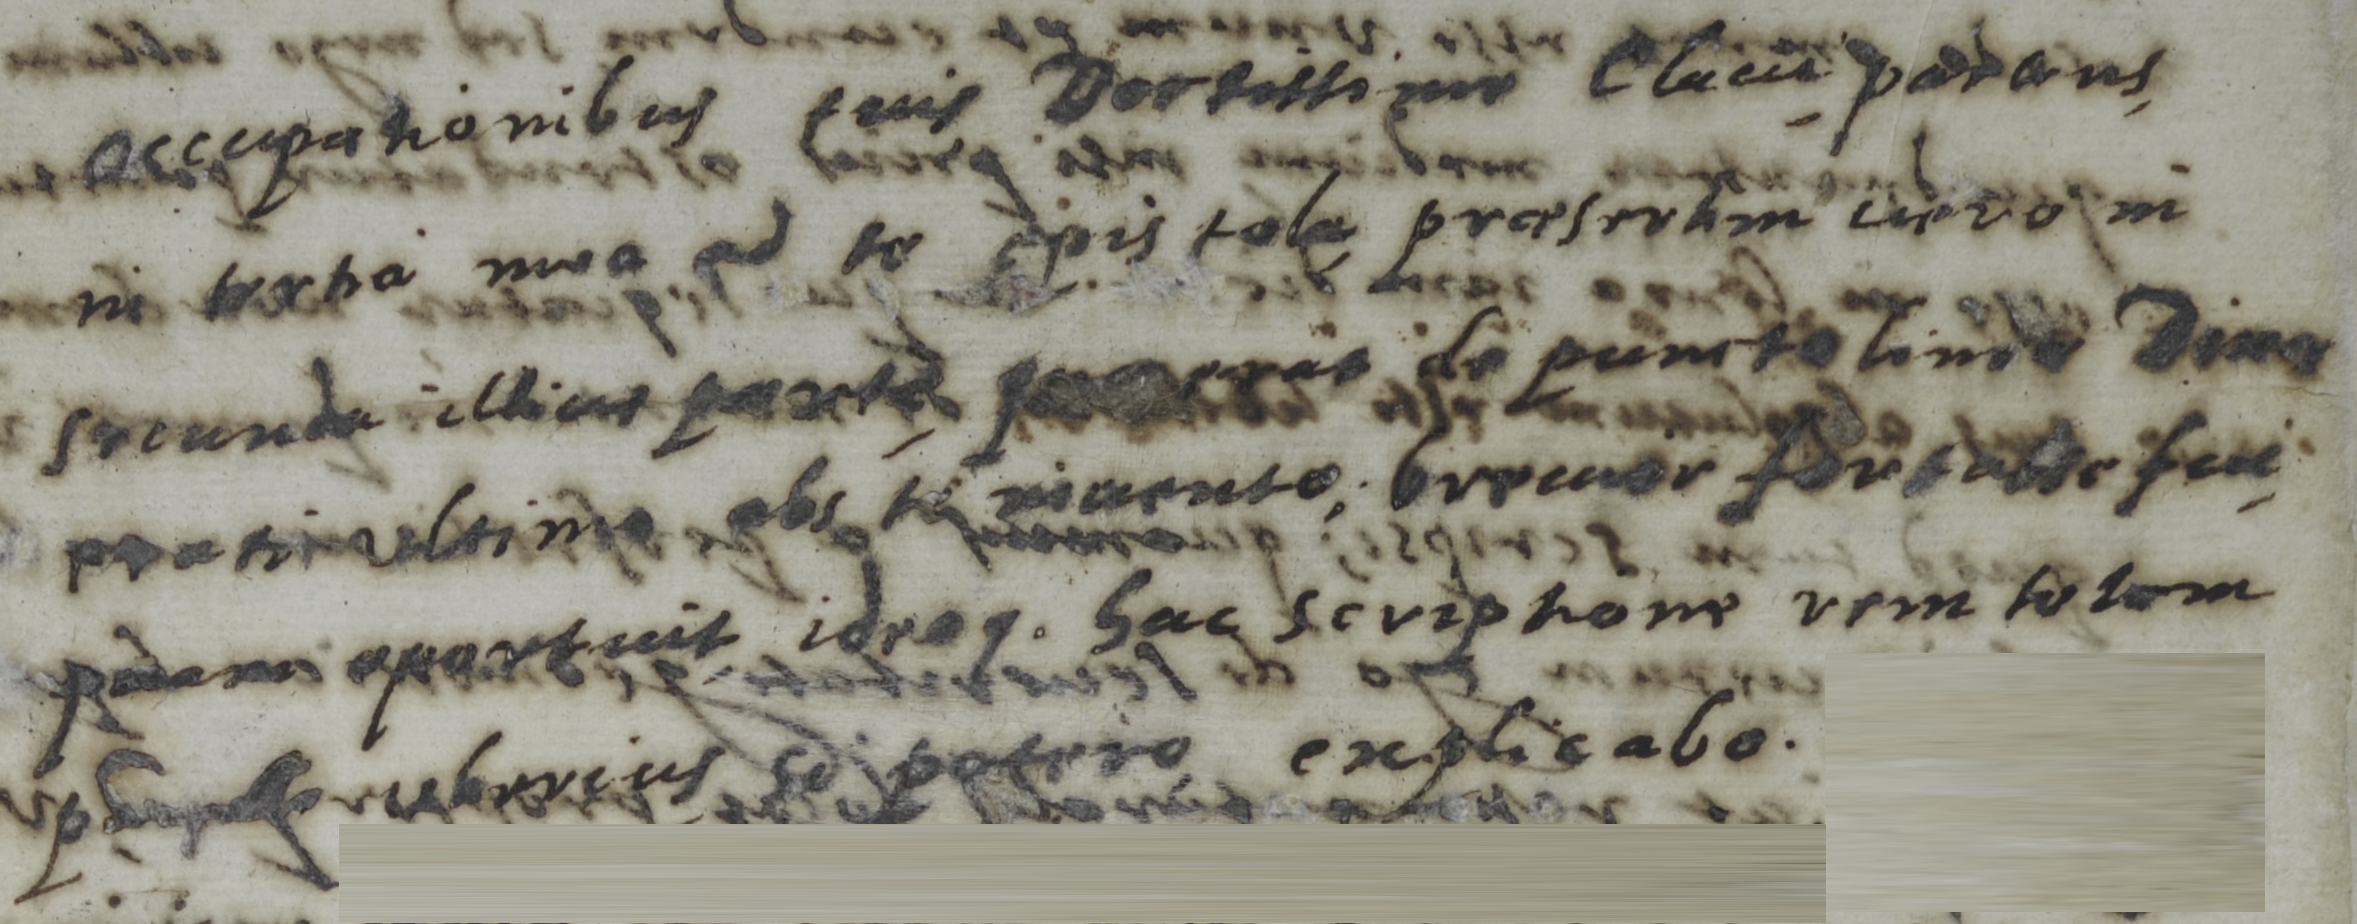 occupationibus tuis Doctissime Claui parens,
in tertia mea ad te epistola praesertim uero in
secunda illius parte, de puncto lineae
ultimo abs te inuento, breuior fortasse fui
quam oportuit ideoq. hac scriptione rem totam
uberius si potero explicabo.